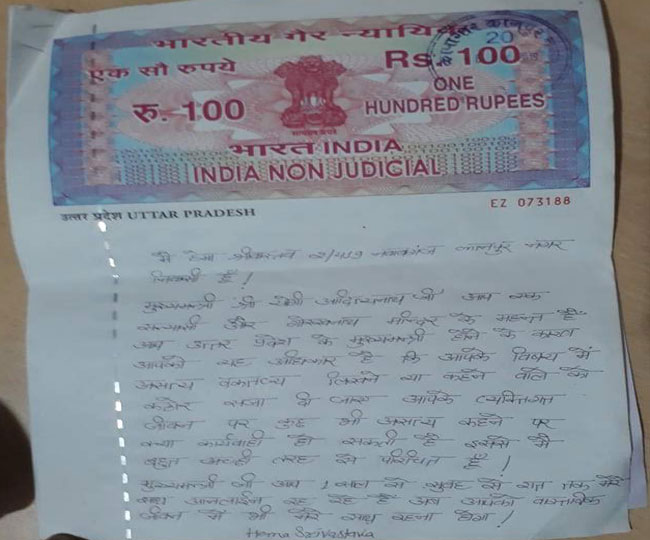 भारतीय गैर न्यायि
20
एक सौ रुपये
Rs 100
ONE
रु. 100
HUNDRED RUPEES
सत्यमेव जयते
भारत INDIA
INDIA NON JUDICIAL
उत्तर प्रदेश UTTAR PRADESH
EZ 073188
मै हेमा श्रीवास्तव कानपुर नगर
निवासी हूँ!
मुख्यमन्त्री श्री योगी आदित्यनाथ जी आप एक
सन्यासी और गोरखनाथ मन्दिर के महन्त है
अब उत्तर प्रदेश के मुख्यमन्त्री होने के कारण
आपको यह अधिकार है कि आपके विषय में
असत्य वक्तव्य लिखने या कहने वाले को
कठोर सजा दी जाए आपके व्यक्तिगत
जीवन पर कुछ भी असत्य कहने पर
क्या कार्यवाही हो सकती है इससे मै
बहुत अच्छी तरह से परिचित हूँ!
मुख्यमन्त्री जी आप 1 साल से सुबह से रात तक मेरे
साथ आनलाईन रह रहे है अब आपको वास्तविक
जीवन में भी मेरे साथ रहना होगा!
Hema Srivastava